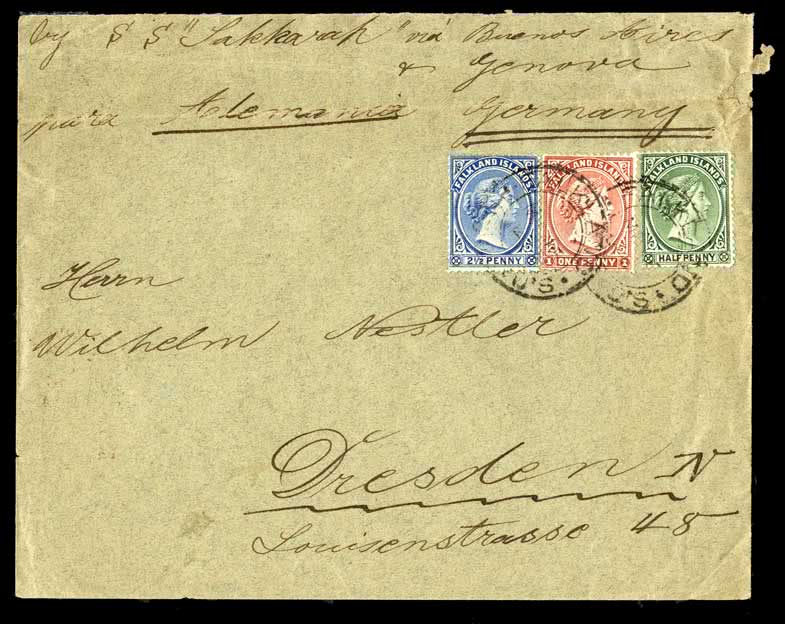 by S S "Sakkarah" via Buenos Aires
& Genova
para Alemania Germany
FALKLAND ISLANDS
2½ PENNY
FALKLAND ISLANDS
1 ONE PENNY 1
FALKLAND ISLANDS
HALF PENNY
Herrn
Wilhelm Nestler
Dresden N
Louisenstrasse 48